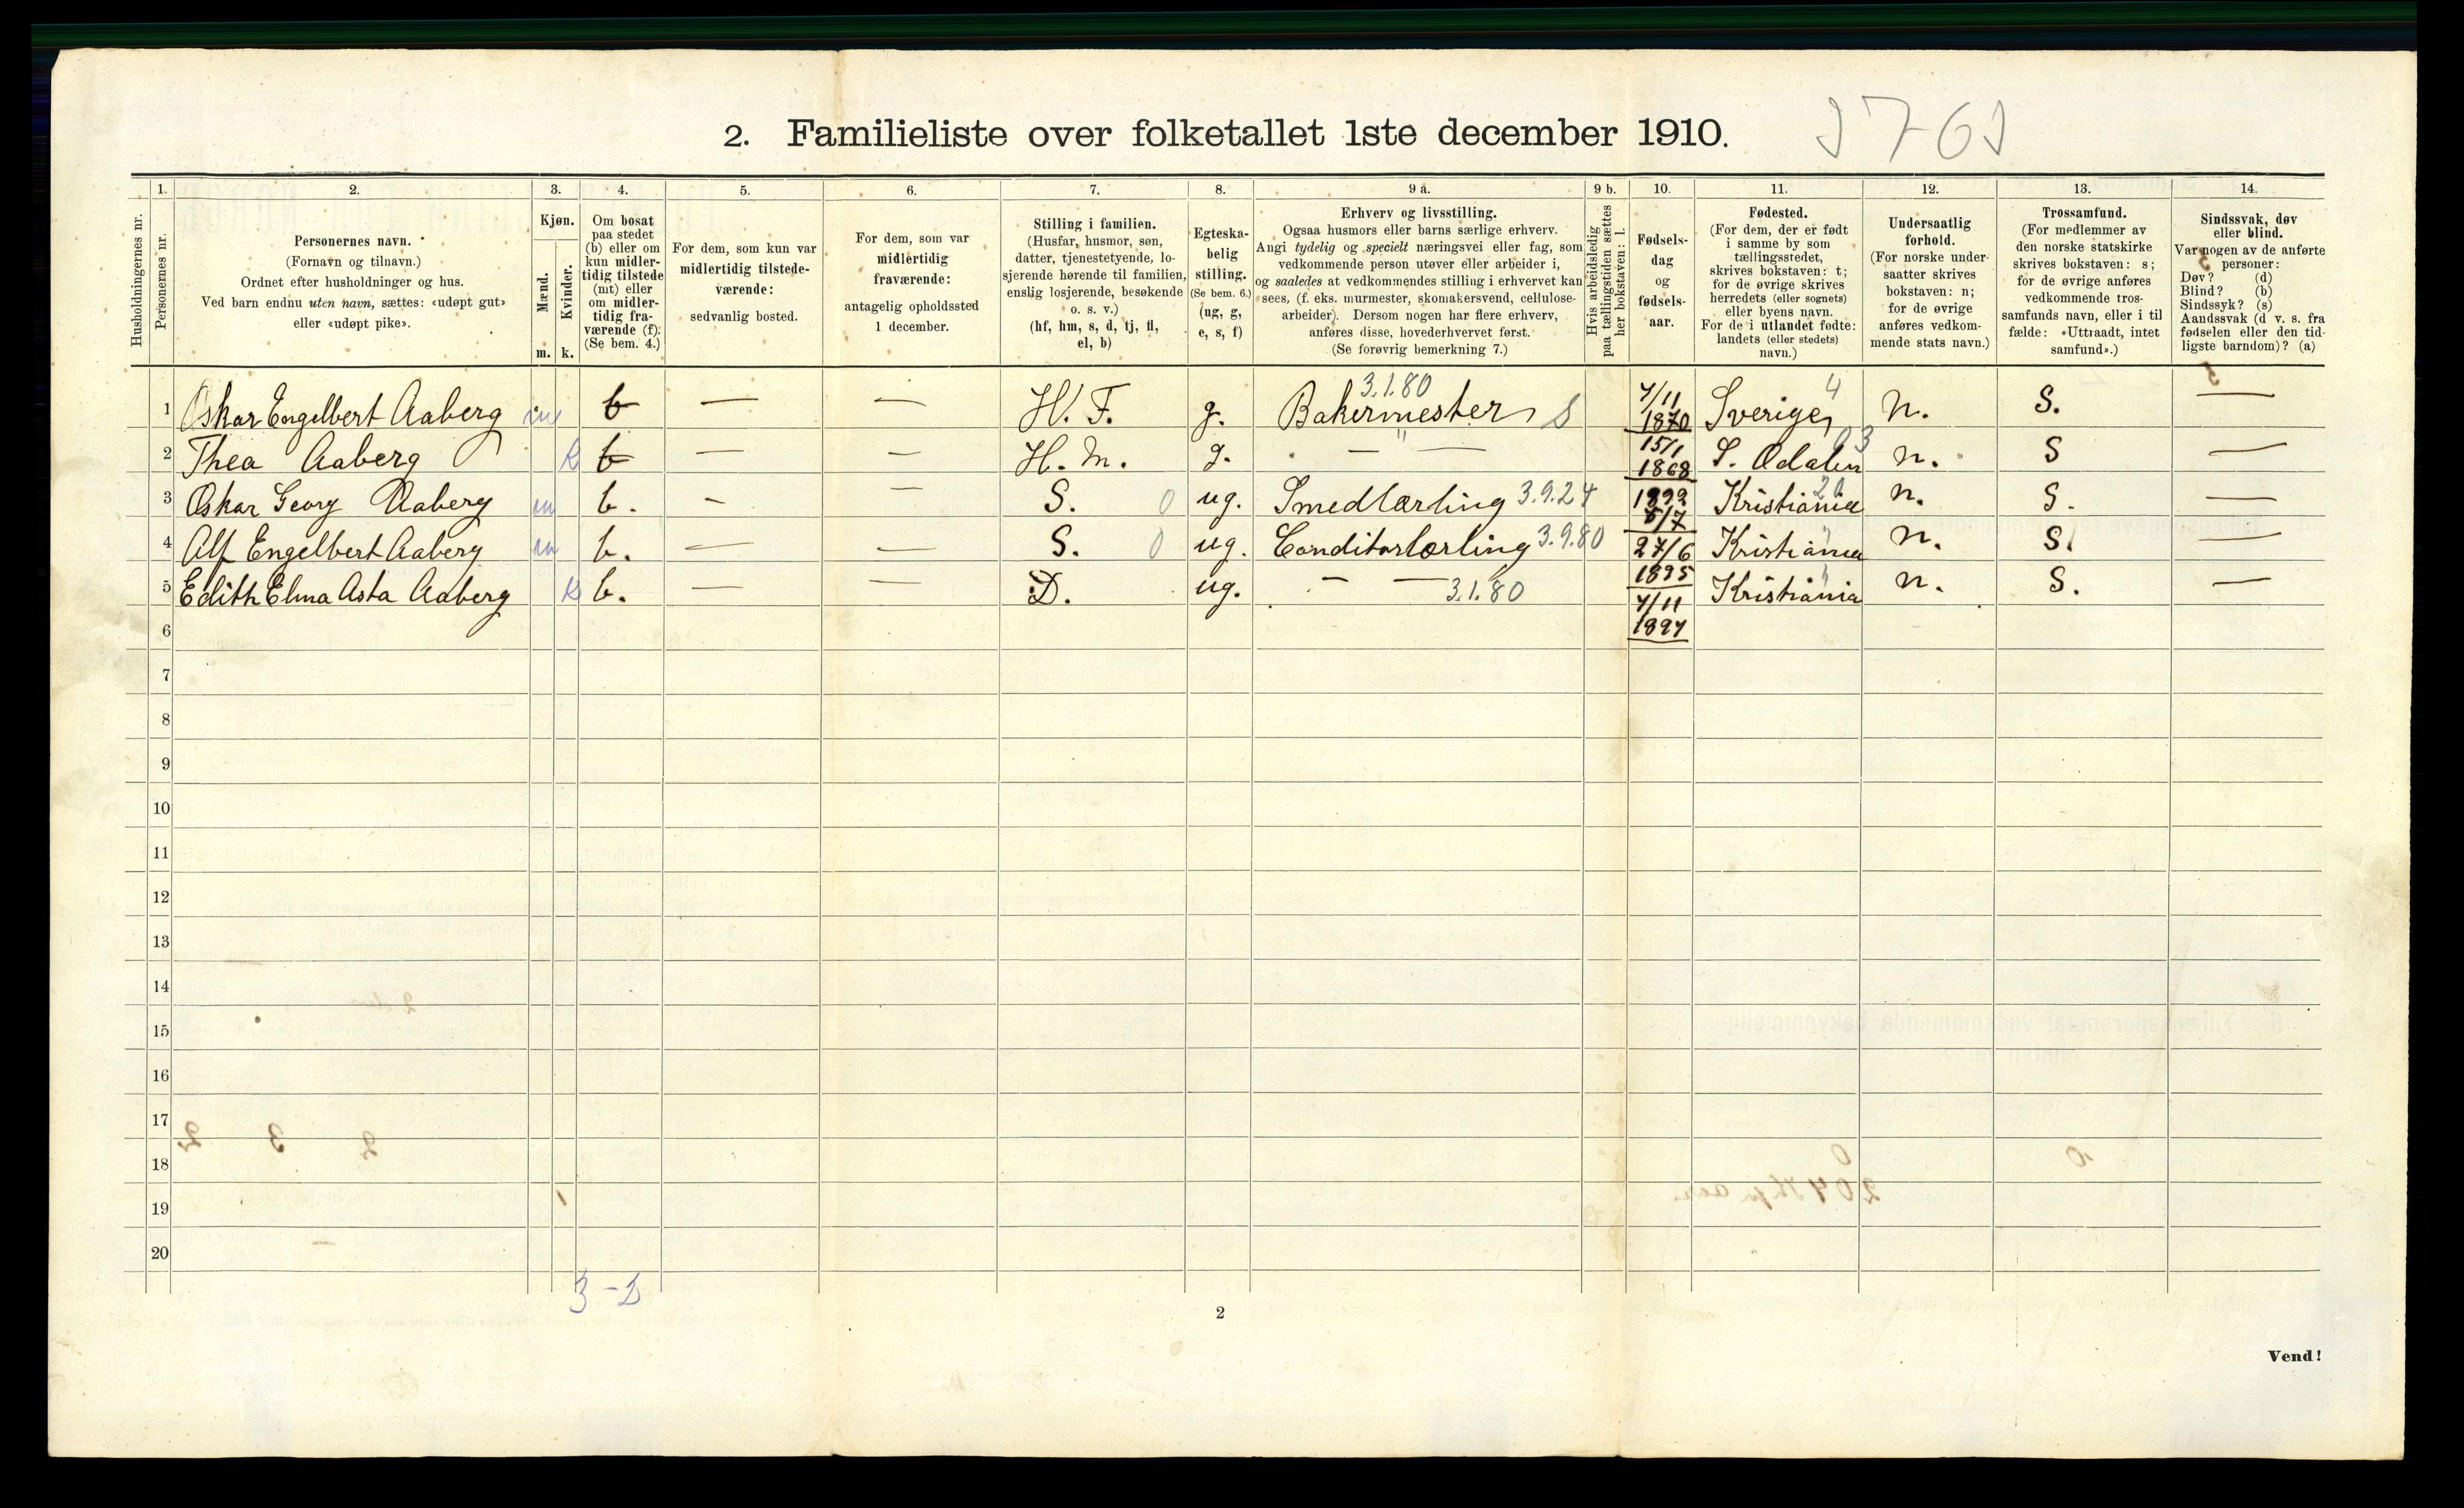 2. Familieliste over folketallet 1ste december 1910.
Husholdningernes nr.
1. Personernes nr.
2. Personernes navn.
(Fornavn og tilnavn.)
Ordnet efter husholdninger og hus.
Ved barn endnu uten navn, sættes: «udøpt gut»
eller «udøpt pike».
3. Kjøn.
Mænd. m.
Kvinder. k.
4. Om bosat
paa stedet
(b) eller om
kun midler-
tidig tilstede
(mt) eller
om midler-
tidig fra-
værende (f).
(Se bem. 4.)
5. For dem, som kun var
midlertidig tilstede-
værende:
sedvanlig bosted.
6. For dem, som var
midlertidig
fraværende:
antagelig opholdssted
1 december.
7. Stilling i familien.
(Husfar, husmor, søn,
datter, tjenestetyende, lo-
sjerende hørende til familien,
enslig losjerende, besøkende
o. s. v.)
(hf, hm, s, d, tj, fl,
el, b)
8. Egteska-
belig
stilling.
(Se bem. 6.)
(ug, g,
e, s, f)
9 a. Erhverv og livsstilling.
Ogsaa husmors eller barns særlige erhverv.
Angi tydelig og specielt næringsvei eller fag, som
vedkommende person utøver eller arbeider i,
og saaledes at vedkommendes stilling i erhvervet kan
sees, (f. eks. murmester, skomakersvend, cellulose-
arbeider). Dersom nogen har flere erhverv,
anføres disse, hovederhvervet først.
(Se forøvrig bemerkning 7.)
9 b. Hvis arbeidsledig
paa tællingstiden sættes
her bokstaven: l.
10. Fødsels-
dag
og
fødsels-
aar.
11. Fødested.
(For dem, der er født
i samme by som
tællingsstedet,
skrives bokstaven: t;
for de øvrige skrives
herredets (eller sognets)
eller byens navn.
For de i utlandet fødte:
landets (eller stedets)
navn.)
12. Undersaatlig
forhold.
(For norske under-
saatter skrives
bokstaven: n;
for de øvrige
anføres vedkom-
mende stats navn.)
13. Trossamfund.
(For medlemmer av
den norske statskirke
skrives bokstaven: s;
for de øvrige anføres
vedkommende tros-
samfunds navn, eller i til
fælde: «Uttraadt, intet
samfund».)
14. Sindssvak, døv
eller blind.
Var nogen av de anførte
personer:
Døv? (d)
Blind? (b)
Sindssyk? (s)
Aandssvak (d v. s. fra
fødselen eller den tid-
ligste barndom)? (a)
1 Oskar Engelbert Aaberg m b — — H. F. g. Bakermester 3.1.80 S 7/11 1870 Sverige 4 n. S. —
2 Thea Aaberg k b — — H. M. g. — " — 15/1 1868 S. Odalen 03 n. S —
3 Oskar Georg Aaberg m b. — — S. 0 ug. Smedlærling 3.9.24 1892 5/7 Kristiania n. S. —
4 Alf Engelbert Aaberg m b. — — S. 0 ug. Conditorlærling 3.9.80 27/6 1895 Kristiania " n. S. —
5 Edith Elma Asta Aaberg k b. — — D. ug. — — 3.1.80 7/11 1897 Kristiania " n. S. —
6
7
8
9
10
11
12
13
14
15
16
17
18
19
20
3 - 2
2
Vend!